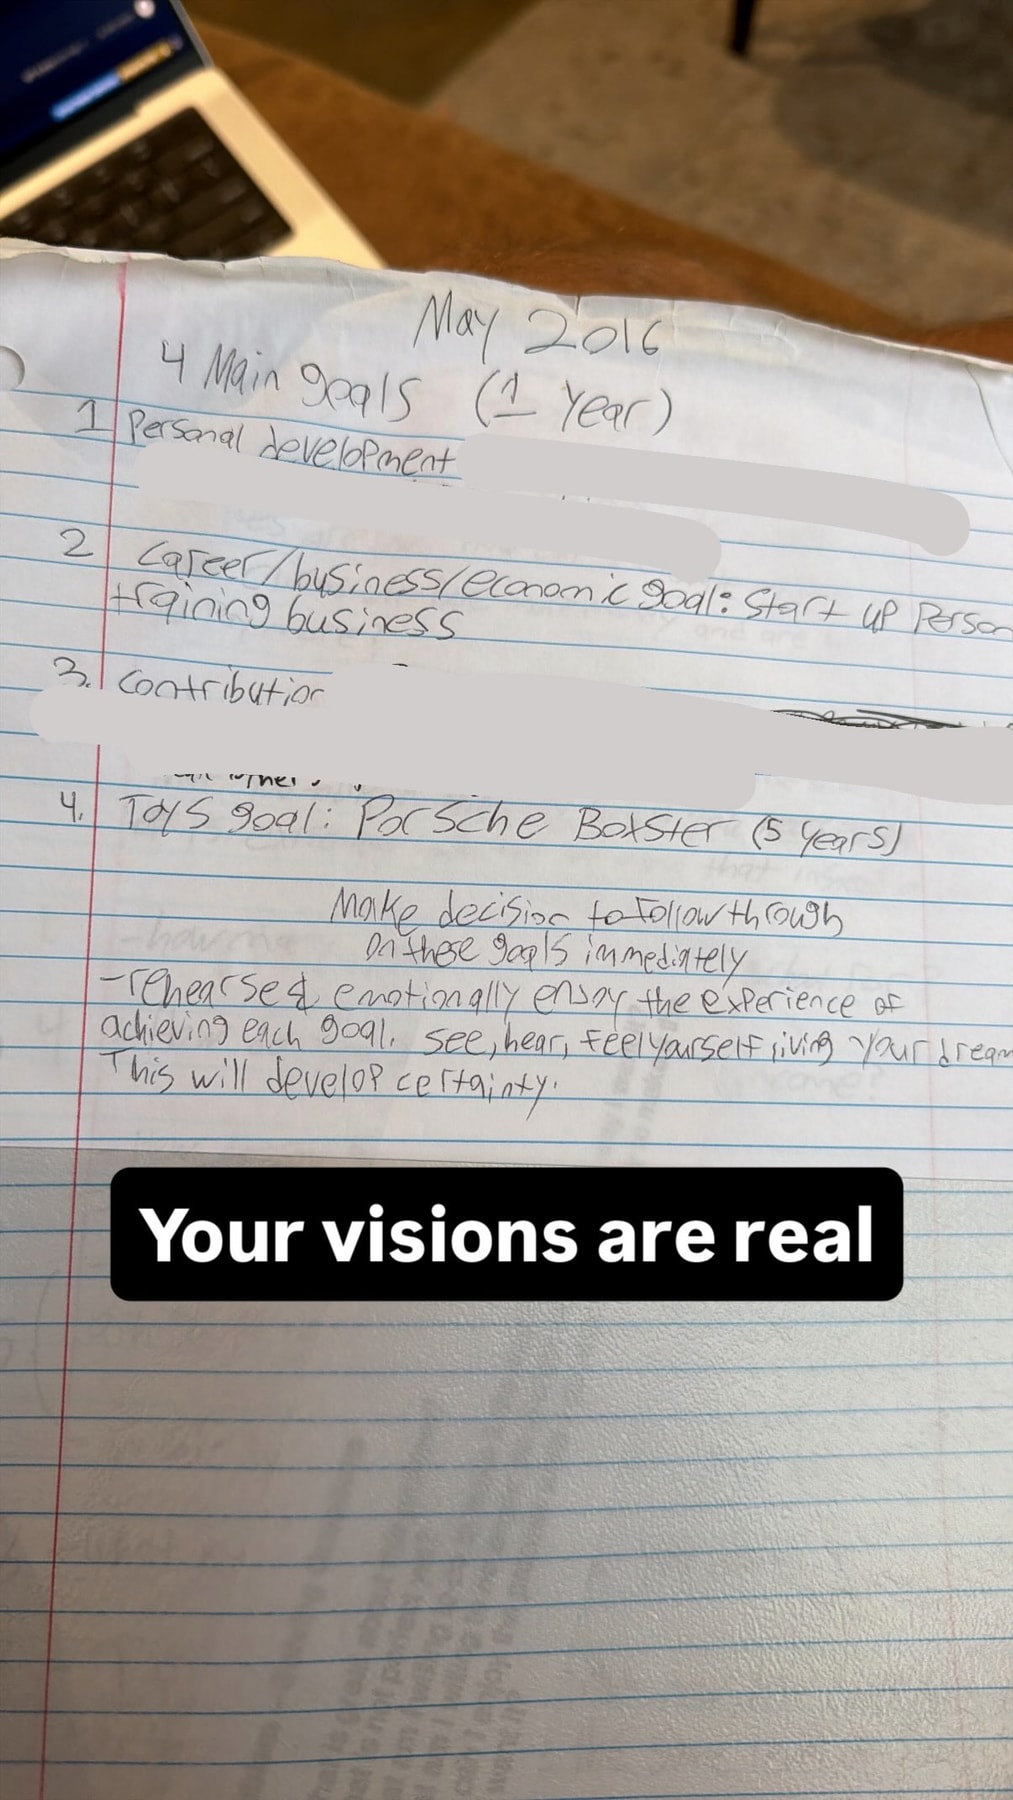 May 2016
4 Main goals (1 Year)
1 Personal development
2 Career/business/economic goal: Start up Person
training business
3. Contribution
4. Toys goal: Porsche Boxster (5 years)
Make decision to follow through
on these goals immediately
-rehearse & emotionally enjoy the experience of
achieving each goal. See, hear, feel yourself living your dream
This will develop certainty.
Your visions are real